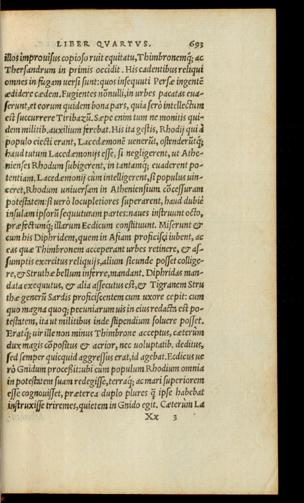 LIBER QVARTVS. 693
illos improuisus copioso ruit equitatu, Thimbronemq́; ac
Thersandrum in primis occidit. His cadentibus reliqui
omnes in fugam uersi sunt: quos insequuti Persæ ingentē
ædidere cædem. Fugientes nōnulli, in urbes pacatas eua-
serunt, et eorum quidem bona pars, quia serò intellectum
est succurrere Tiribazū. Sæpe enim tum ne monitis qui-
dem militib. auxilium ferebat. His ita gestis, Rhodij qui à
populo eiecti erant, Lacedæmonē uenerūt, ostenderūtq́;
haud tutum Lacedæmonijs esse, si negligerent, ut Athe-
nienses Rhodum subigerent, in tantamq́; euaderent po-
tentiam. Lacedæmonij cùm intelligerent, si populus uin-
ceret, Rhodum uniuersam in Atheniensium cōcessuram
potestatem: si uerò locupletiores superarent, haud dubiè
insulam ipsorū sequuturam partes: naues instruunt octo,
præfectumq́; illarum Eedicum constituunt. Miserunt &
cum his Diphridem, quem in Asiam proficisci iubent, ac
eas quæ Thimbronem acceperant urbes retinere, & as-
sumptis exercitus reliquijs, alium secunde posset collige-
re, & Struthæ bellum inferre, mandant. Diphridas man-
data exequutus, & alia assecutus est, & Tigranem Stru
thæ generū Sardis proficiscentem cum uxore cepit: cum
quo magna quoq; pecuniarum uis in eius redacta est po-
testatem, ita ut militibus inde stipendium soluere posset.
Eratq́; uir ille non minus Thimbrone acceptus, cæterum
dux magis cōpositus & acrior, nec uoluptatib. deditus,
sed semper quicquid aggressus erat, id agebat. Eedicus ue
rò Gnidum processit: ubi cum populum Rhodium omnia
in potestatem suam redegisse, terraq́; ac mari superiorem
esse cognouisset, præterea duplo plures q̄ ipse habebat
instruxisse triremes, quietem in Gnido egit. Cæterùm La
Xx 3